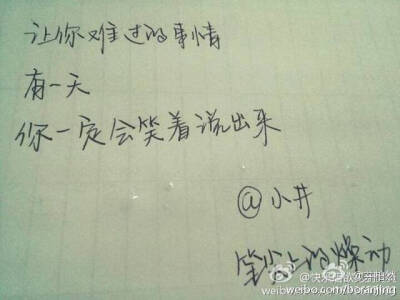 让你难过的事情
有一天
你一定会笑着说出来
@小井
笔尖上的燥动
weibo.com/boranjing